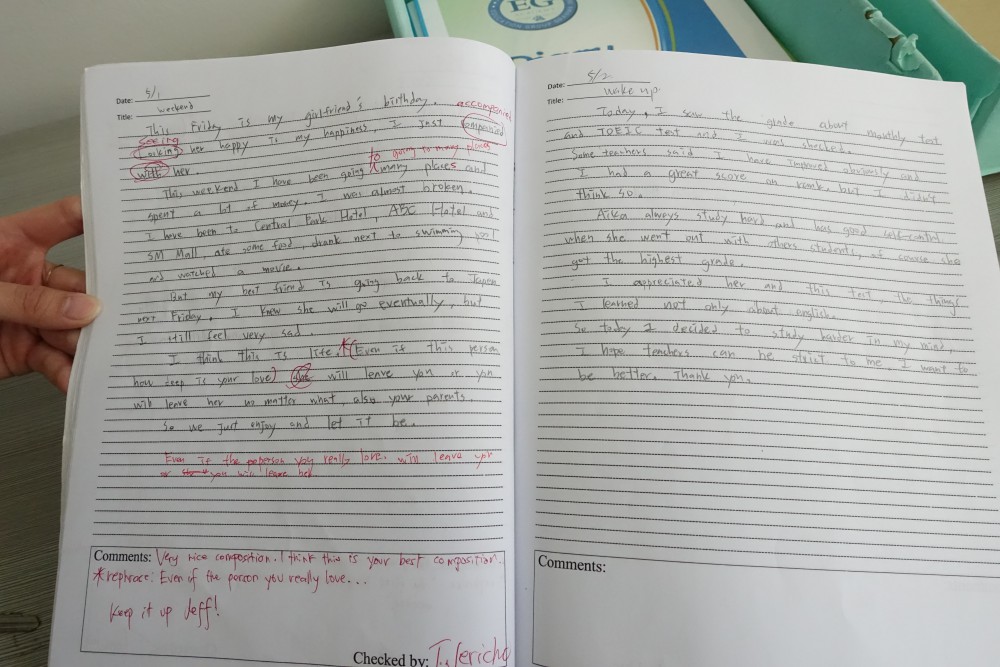 EG
Date: 5/1
Title: weekend
This Friday is my girlfriend's birthday.
accompanied
seeing
Looking her happy is my happiness, I just companied
with her.
to going to many places
This weekend I have been going many places and
spent a lot of money, I was almost broken.
I have been to Central Park Hotel, ABC Hotel and
SM Mall, ate some food, drank next to swimming pool
and watched a movie.
But my best friend is going back to Japan
next Friday, I know she will go eventually, but
I still feel very sad.
I think this is life. *(Even if this person
how deep is your love) she will leave you or you
will leave her no matter what, also your parents.
So we just enjoy and let it be.
Even if the person you really love. will leave you
or you will leave her.
Comments: Very nice composition. I think this is your best composition.
*rephrase: Even if the person you really love...
Keep it up Jeff!
Checked by: T. Jericho
Date: 5/2
Title: wake up.
Today, I saw the grade about monthly test
and TOEIC test and I was shocked.
Some teachers said I have improved obviously and
I had a great score on rank. but I didn't
think so.
Aika always study hard and has good self-control.
when she went out with others students, of course she
got the highest grade.
I appreciated her and this test, the things
I learned not only about english.
So today I decided to study harder in my mind,
I hope teachers can be strict to me, I want to
be better. Thank you.
Comments: